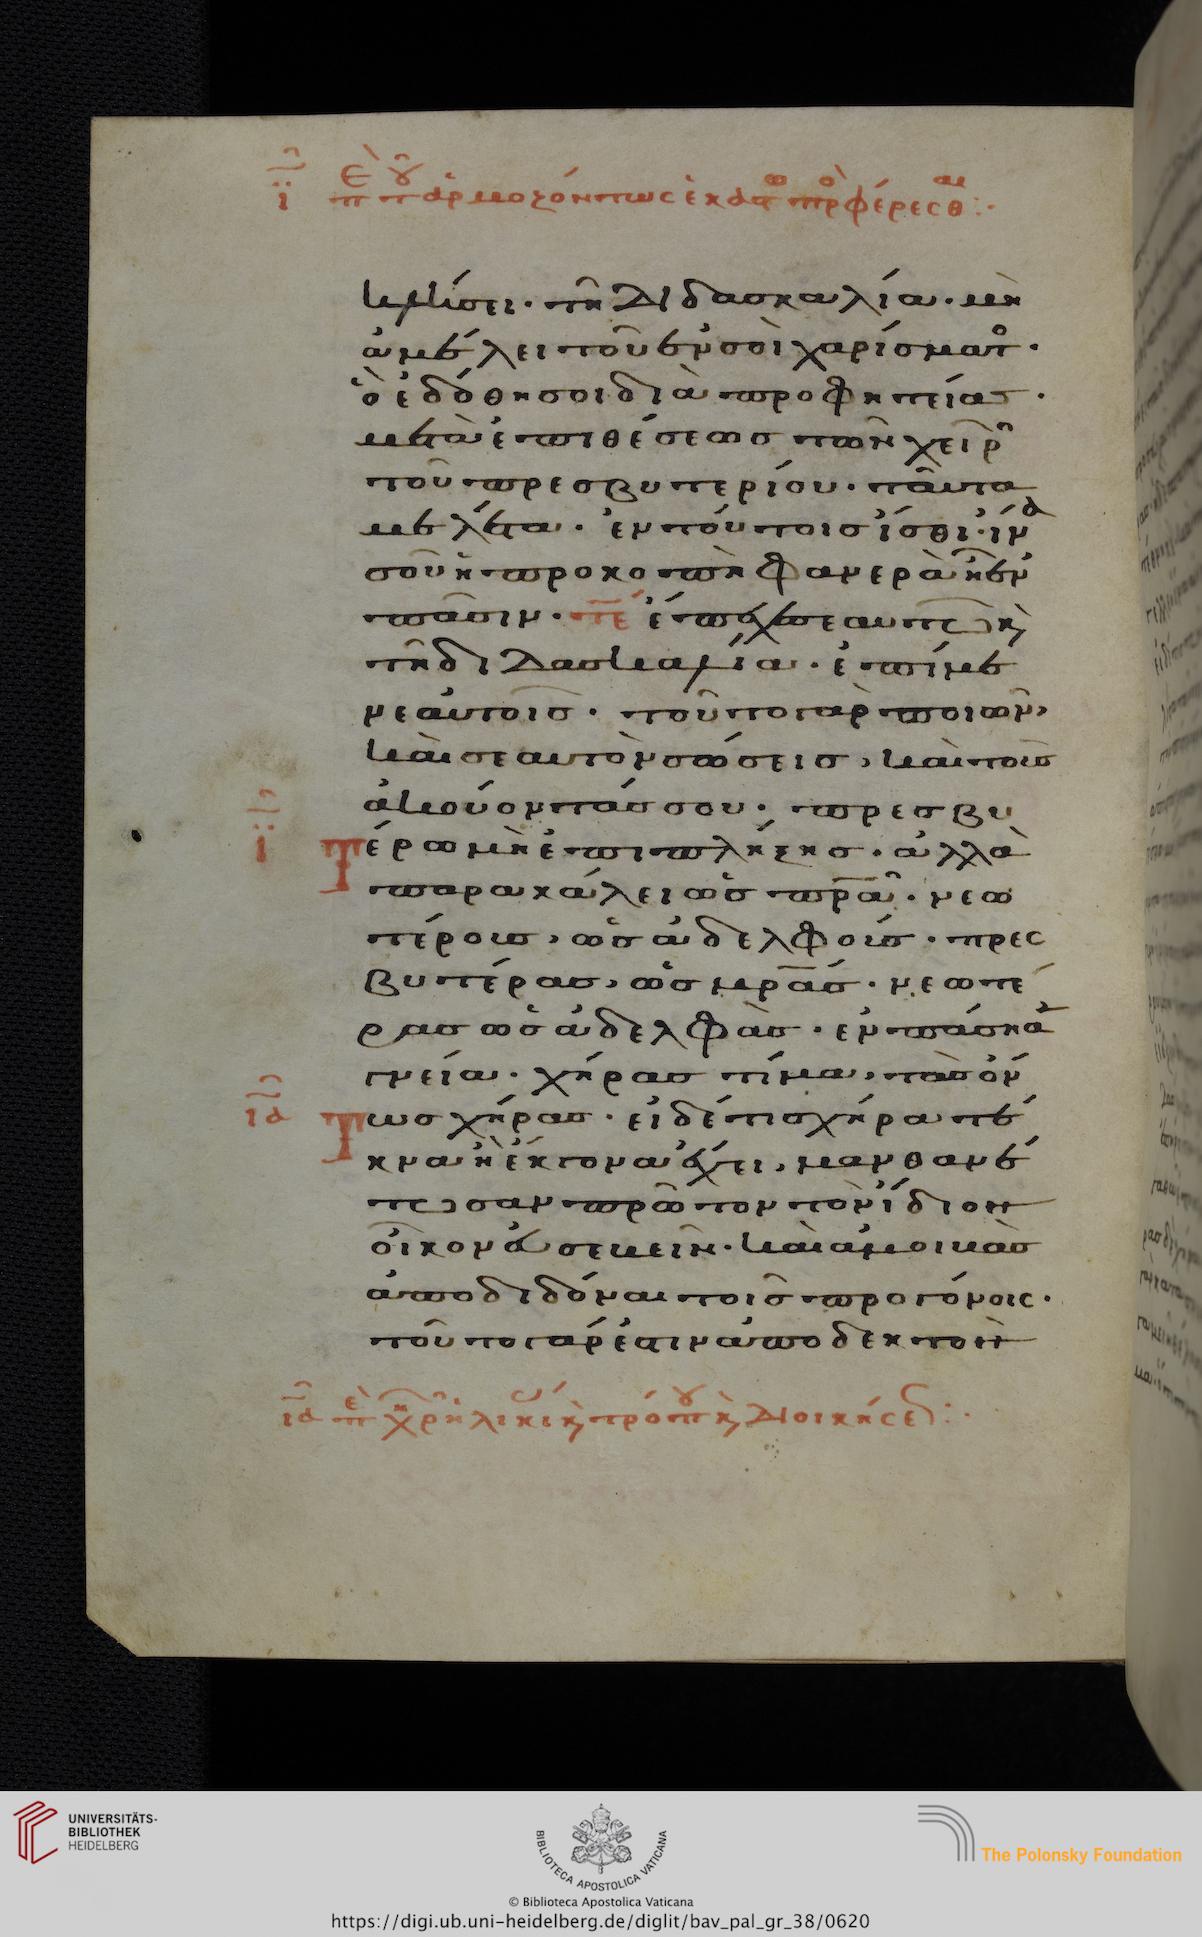 ϊ περὶ τοῦ ἁρμοζόντως ἑκάστω προσφέρεσθαι:
κλήσει· τῆ διδασκαλία· μὴ
ἀμέλει τοῦ ἐν σοὶ χαρίσματος·
ὃ ἐδόθη σοι διὰ προφητείας·
μετὰ ἐπιθέσεως τῶν χειρῶν
τοῦ πρεσβυτερίου· ταῦτα
μελέτα· ἐν τούτοις ἴσθι· ἵνα
σοῦ ἡ προκοπὴ φανερὰ ἦ ἐν
πᾶσιν· τε ἔπεχε σεαυτῶ καὶ
τῆ διδασκαλία· ἐπίμε
νε αὐτοῖς· τοῦτο γὰρ ποιῶν,
καὶ σεαυτὸν σώσεις, καὶ τοὺς
ἀκούοντάς σου· πρεσβυ
τέρω μὴ ἐπιπλήξης· ἀλλὰ
παρακάλει ὡς πρα· νεω
τέρους, ὡς ἀδελφούς· πρεσ
βυτέρας, ὡς μρας· νεωτέ
ρας ὡς ἀδελφὰς· ἐν πάση ἁ
γνεία· χήρας τίμα, τὰς ὄν
τως χήρας· εἰ δέ τις χήρα τέ
κνα ἢ ἔκγονα ἔχει, μανθανέ
τωσαν πρῶτον τὸν ἴδιον
οἶκον εὐσεβεῖν· καὶ ἀμοιβὰς
ἀποδιδόναι τοῖς προγόνοις·
τοῦτο γάρ ἐστιν ἀποδεκτὸν
ια περὶ χηρῶν ἡλικίας καὶ τρόπου καὶ διοικήσεως:
UNIVERSITÄTS-
BIBLIOTHEK
HEIDELBERG
BIBLIOTECA APOSTOLICA VATICANA
The Polonsky Foundation
© Biblioteca Apostolica Vaticana
https://digi.ub.uni-heidelberg.de/diglit/bav_pal_gr_38/0620